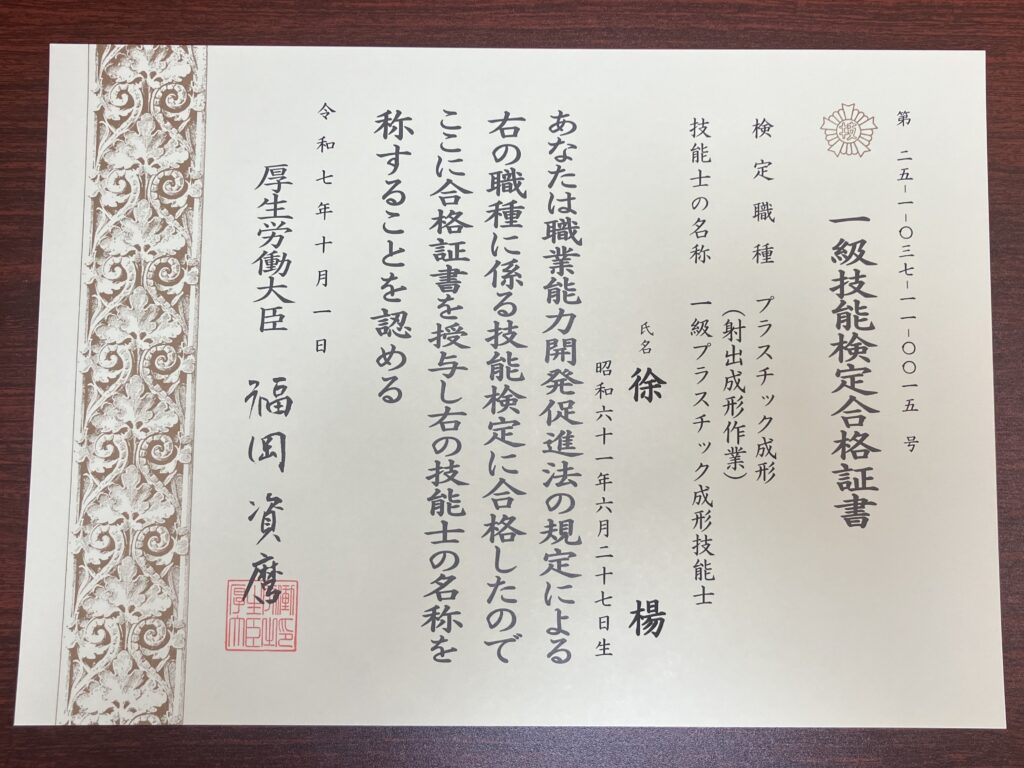 第 二五-一-〇三七-一一-〇〇一五 号
一級技能検定合格証書
検定職種 プラスチック成形
(射出成形作業)
技能士の名称 一級プラスチック成形技能士
氏名 徐 楊
昭和六十一年六月二十七日生
あなたは職業能力開発促進法の規定による
右の職種に係る技能検定に合格したので
ここに合格証書を授与し右の技能士の名称を
称することを認める
令和七年十月一日
厚生労働大臣 福岡資麿